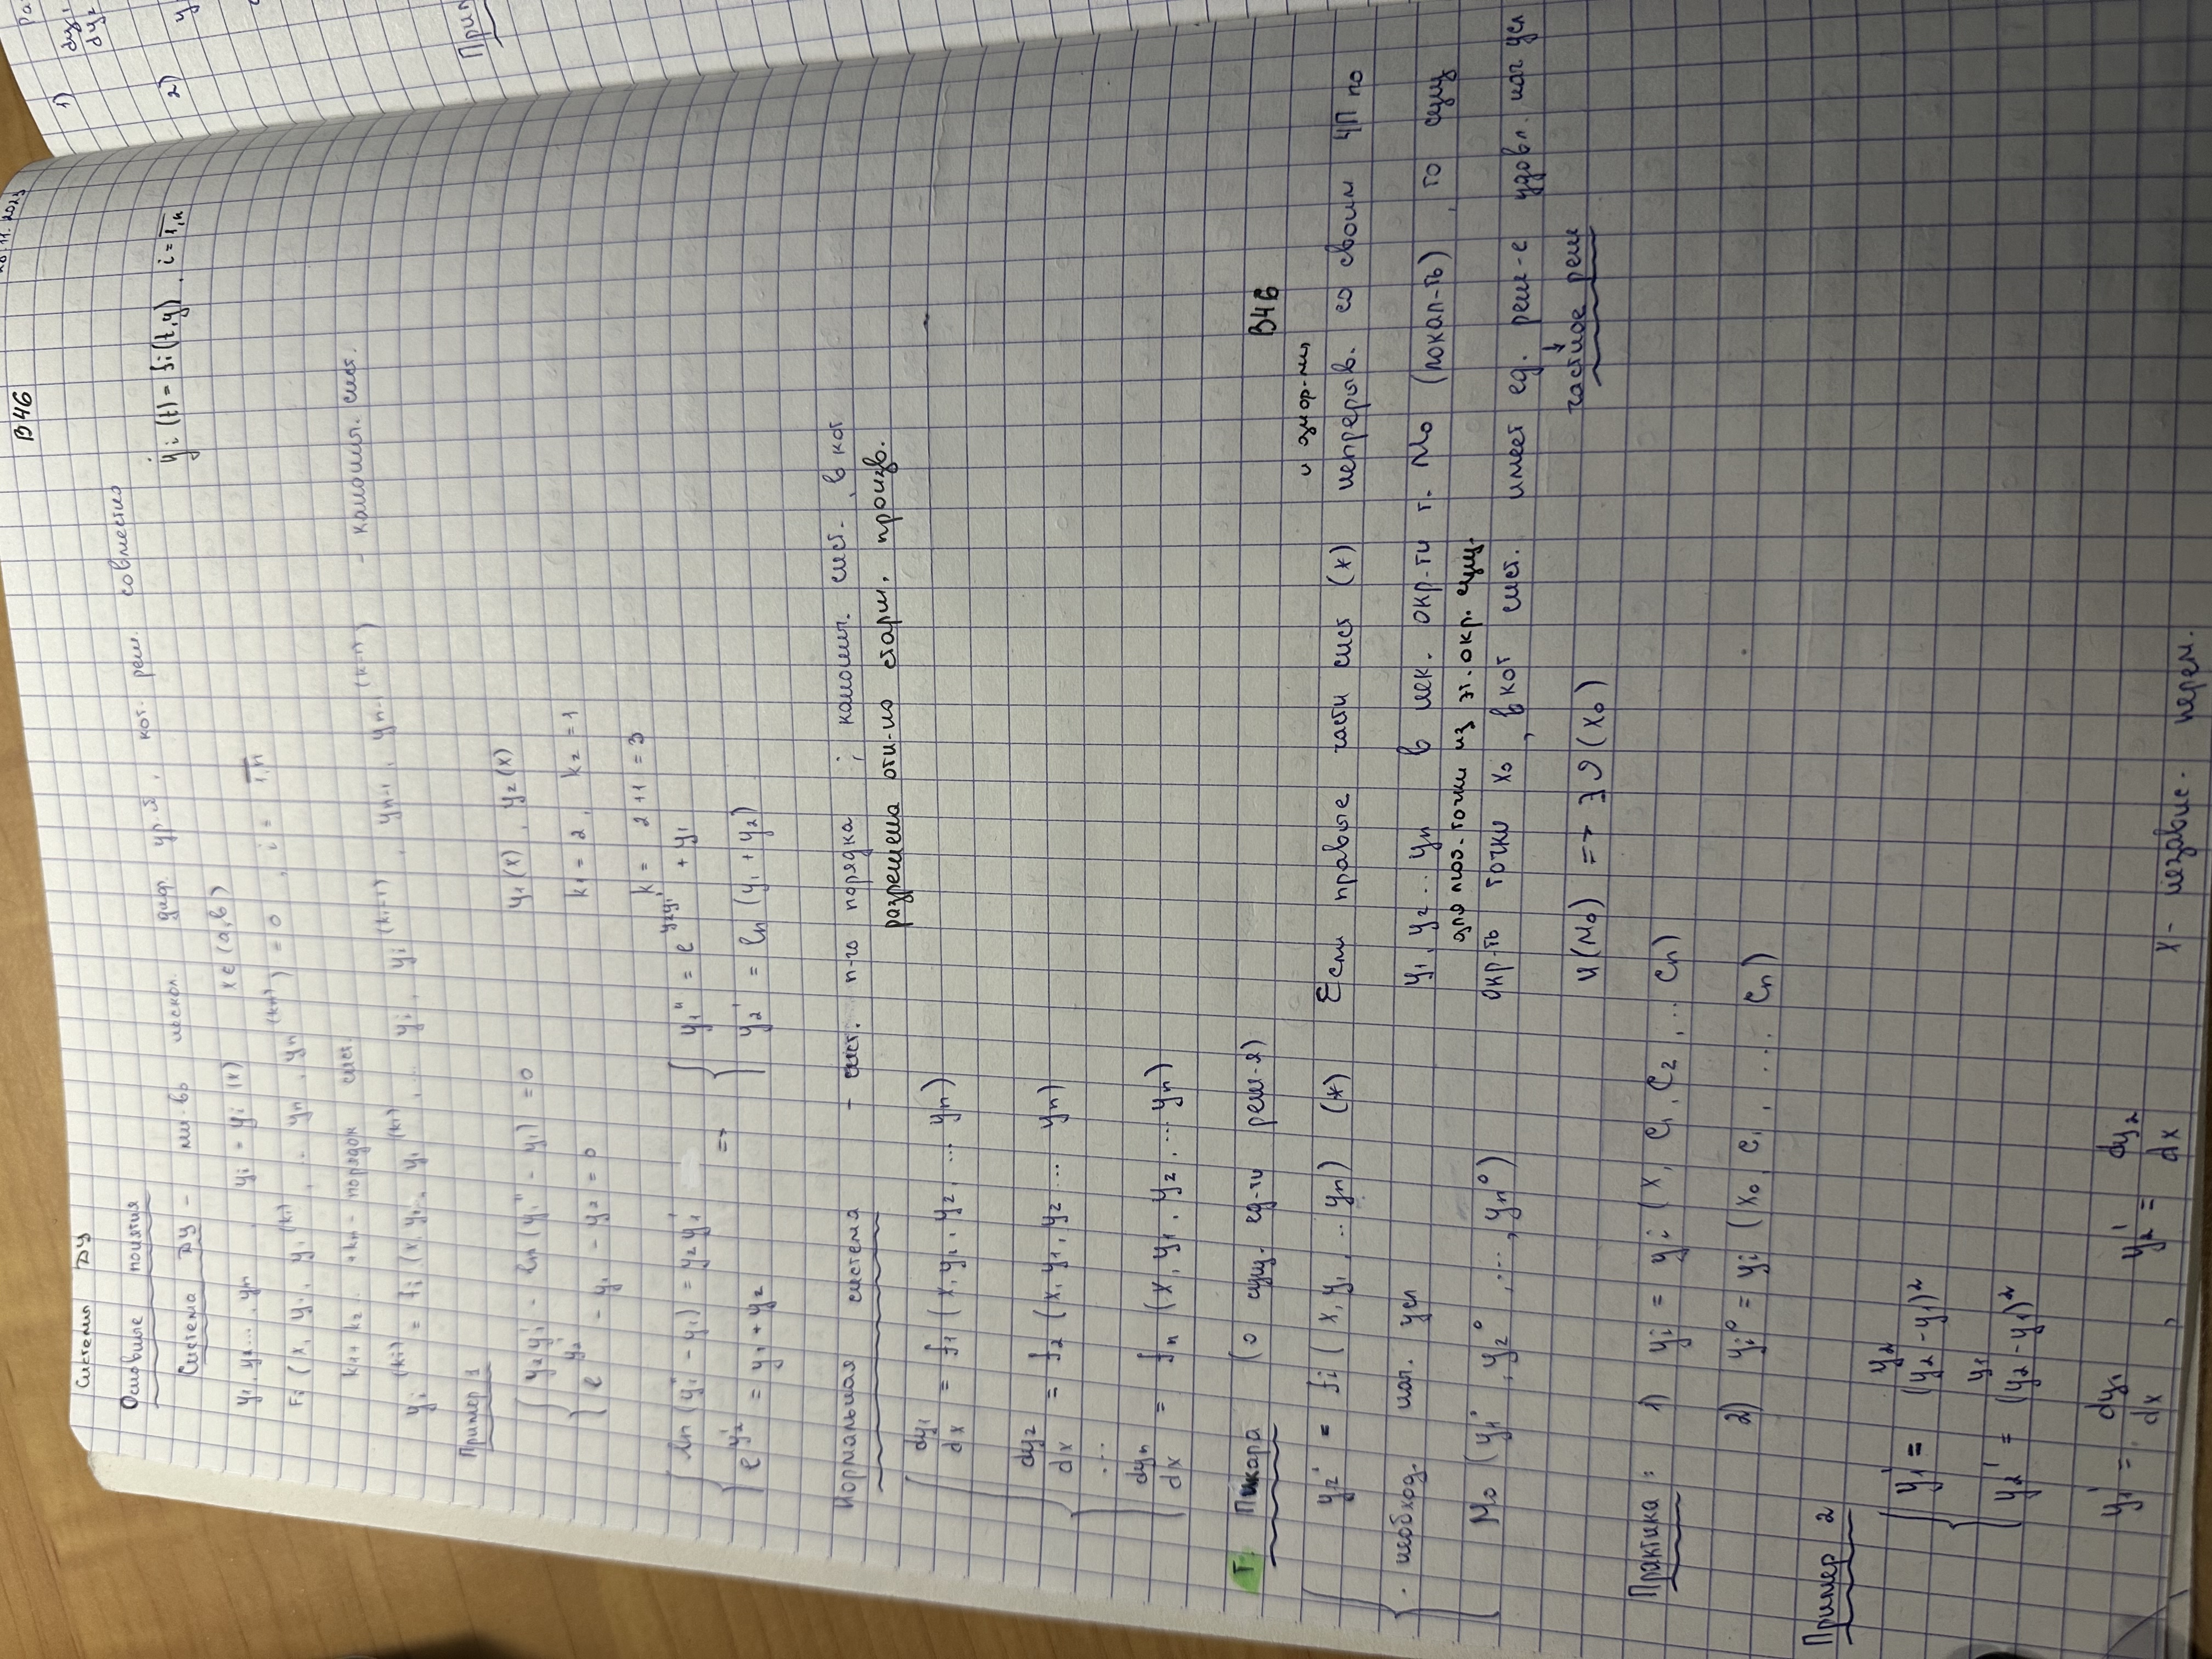 В46
20.11.2023
Системы ДУ
Основные понятия
Система ДУ - мн-во нескол. диф. ур-й, кот. реш. совместно
ẏi (t) = fi (t, y), i = 1,n
y1, y2 ..., yn , yi = yi (x) x ∈ (a, b)
Fi (x, y1, y1^(k1), ... yn, yn^(kn)) = 0 , i = 1,n
k1 + k2 ... + kn - порядок сист.
yi^(ki) = fi (x, y1 ... y1^(k1), ... yi, yi^(ki-1), yn-1, yn-1^(k-n)) - канонич. сист.
Пример 1
y2 y1' - ln (y1'' - y1) = 0 y1(x), y2(x)
e^y2' - y1 - y2 = 0 k1 = 2, k2 = 1
k = 2+1 = 3
ln (y1'' - y1) = y2 y1' => y1'' = e^y2y1' + y1
e^y2' = y1 + y2 y2' = ln (y1 + y2)
Нормальная система - сист. n-го порядка ; канонич. сист., в кот
разрешена отн-но старш. произв.
dy1/dx = f1 (x, y1, y2, ... yn)
dy2/dx = f2 (x, y1, y2 ... yn)
...
dyn/dx = fn (x, y1, y2, ... yn)
Т. Пикара (о сущ. ед-ти реш-я) В46
и
y2' = fi (x, y1, .. yn) (*) Если правые части сист (*) непрерыв. со своим ЧП по
необход. нач. усл y1, y2 .. yn в нек. окр-ти т. M0 (локал-ть), то сущ
для люб. точки из эт. окр. сущ.
M0 (y1°, y2°, ..., yn°) окр-ть точки x0, в кот сист. имеет ед. реш-е удовл. нач усл
↓
И(M0) => ∃ (x0) частное реш
Практика: 1) yi = yi (x, c1, c2, .. cn)
2) yi° = yi (x0, c1, .... cn)
Пример 2
y1' = y2/(y2 - y1)²
y2' = y1/(y2 - y1)²
y1' = dy1/dx , y2' = dy2/dx x - независ. перем.
1)
dy1
dy2
2)
y
Прим